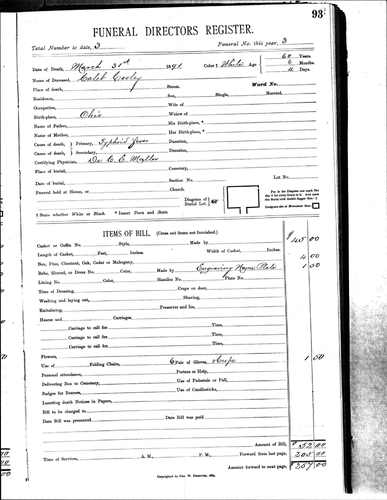 93
FUNERAL DIRECTORS REGISTER.
Total Number to date, 3 Funeral No. this year, 3
Date of Death, March 31st 1891 Color † White Age 60 Years.
Name of Deceased, Caleb 6 Months.
Place of death, Street. 11 Days.
Residence, Ward No.
Occupation, Sex, Single, Married.
Place of Birth,* Ohio Wife of
Widow of
Name of Father, His Birth-place, *
Name of Mother, Her Birth-place *
Cause of death, Primary, Typhoid Fever Duration,
Cause of death, Secondary, Duration,
Certifying Physician, Dr. C. E.
Place of burial, Cemetery,
Date of burial, Section No. Lot No.
Funeral held at House, or Church.
Diagram of Burial Lot
† State whether White or Black. * Insert Town and State.
ITEMS OF BILL. (Cross out items not furnished.)
Casket or Coffin No. Style, Made by $ 45 00
Length of Casket, Feet, Inches. Width of Casket, Inches.
Box, Pine, Chestnut, Oak, Cedar or Mahogany, 4 00
Robe, Shroud, or Dress No. Color, Made by Engraving Name Plate 1 50
Lining No. Color, Handles No. Plate No.
Time of Dressing, Crape on door,
Washing and laying out, Shaving,
Embalming, Preserver and Ice,
Hearse and Carriages
Carriage to call for Time,
Carriage to call for Time,
Carriage to call for Time,
Carriage to call for Time,
Flowers,
Use of Folding Chairs, 6 Pair of Gloves, Crape 1 50
Personal attendance, Porters or Help,
Delivering Box to Cemetery, Use of Pedestals or Pall,
Badges for Bearers, Use of Candlesticks,
Inserting death Notices in Papers,
Bill to be charged to
Date Bill was presented Date Bill was paid
Amount of Bill, $ 52 00
Time of Services, A. M., P. M., Forward from last page, 205 00
Amount forward to next page, $ 257 00